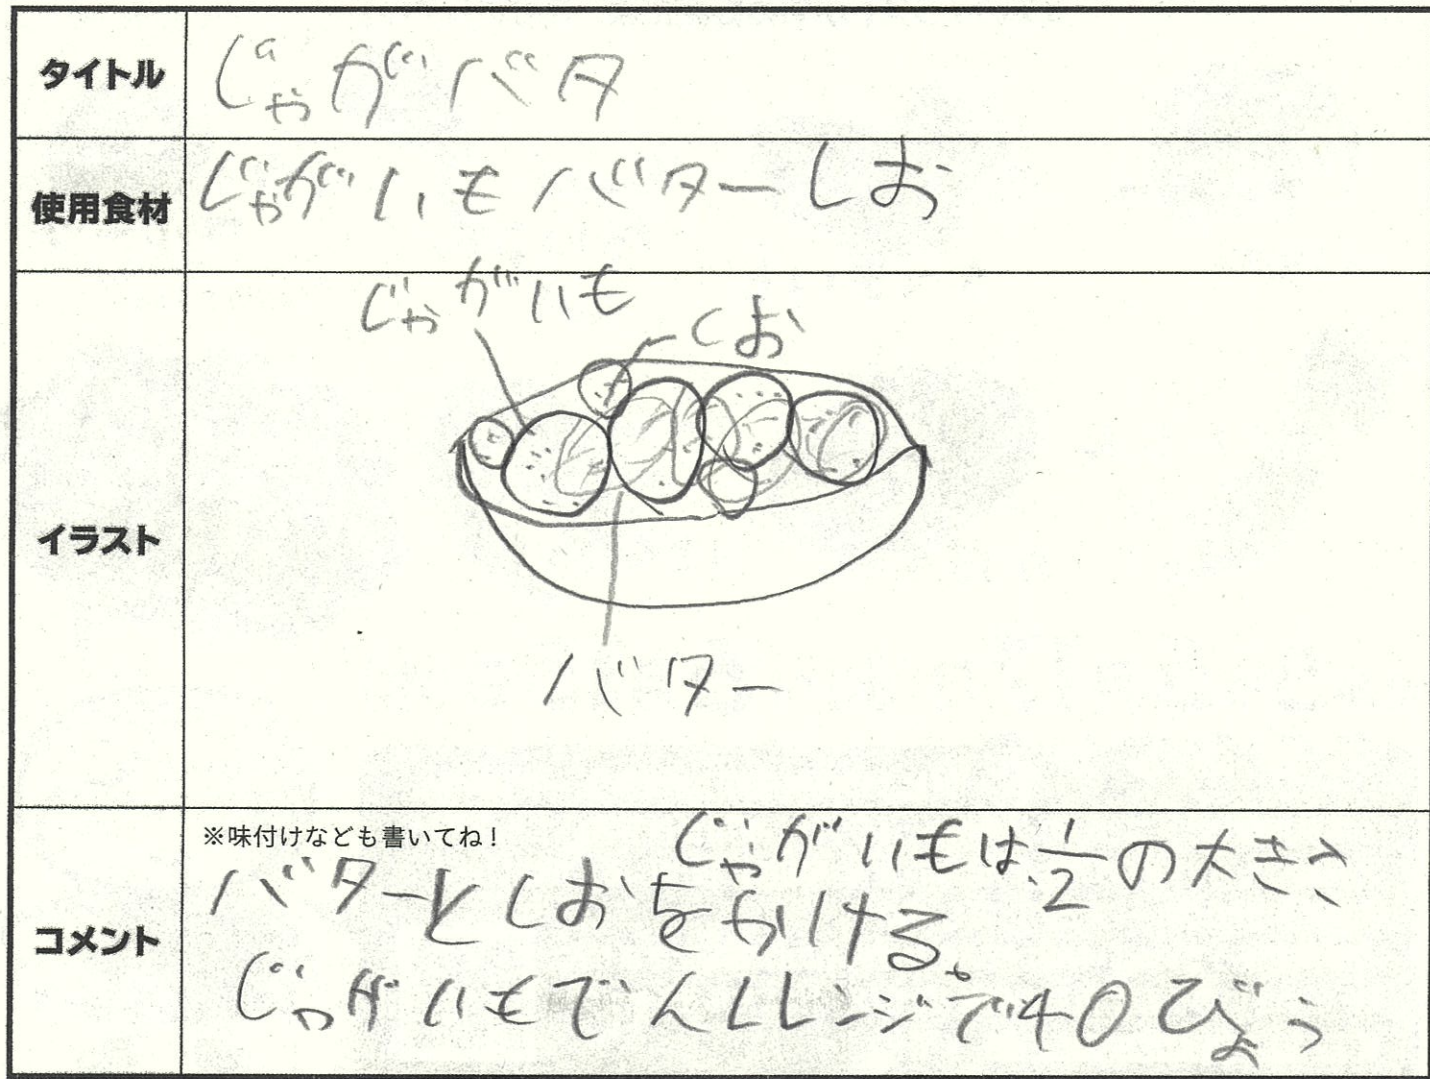 タイトル
じゃがバタ
使用食材
じゃがいもバターしお
イラスト
じゃがいも
しお
バター
コメント
※味付けなども書いてね!
じゃがいもは1/2の大きさ
バターとしおをかける。
じゃがいもでんしレンジで40びょう